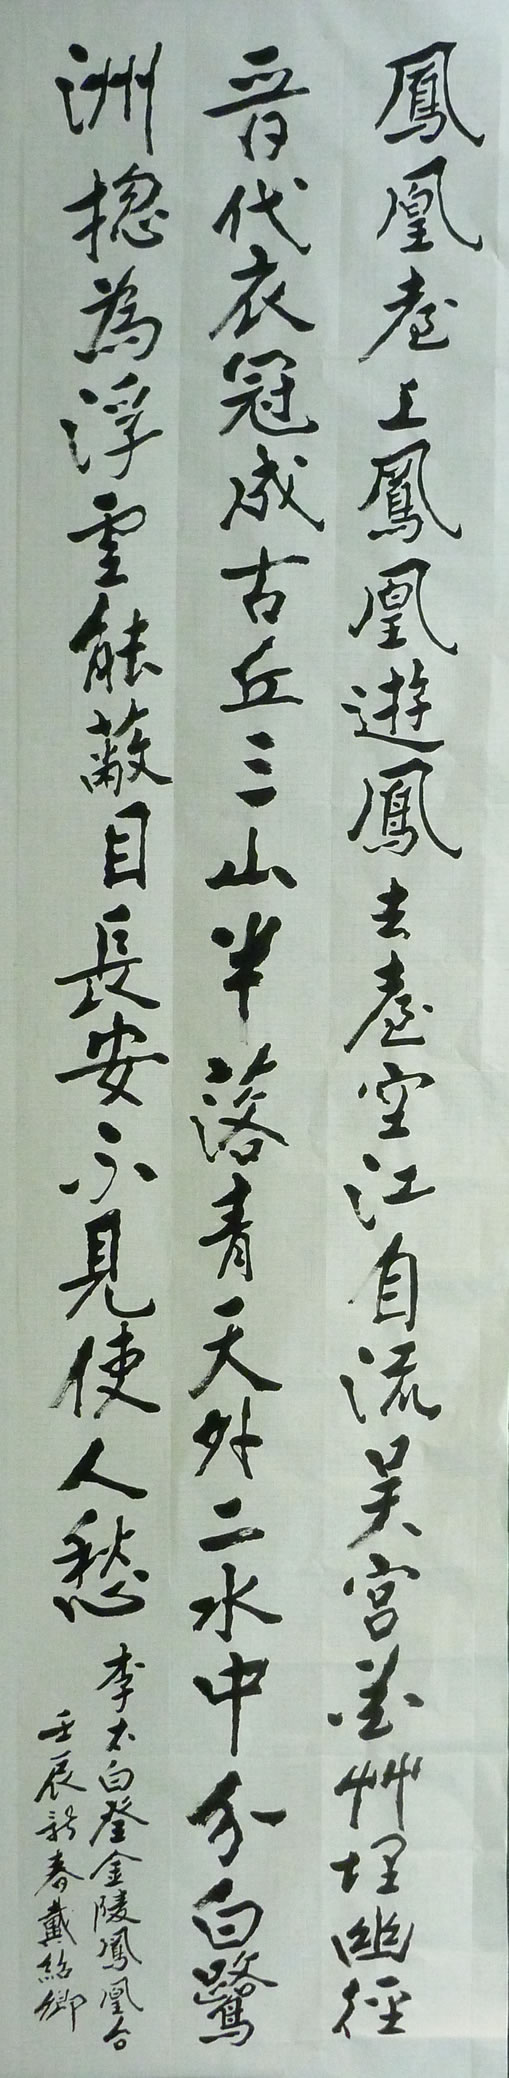 鳳凰臺上鳳凰遊鳳去臺空江自流吴宫花艸埋幽徑
晋代衣冠成古丘三山半落青天外二水中分白鷺
洲捴為浮雲能蔽日長安不見使人愁
李太白登金陵鳳凰台
壬辰新春戴紹卿